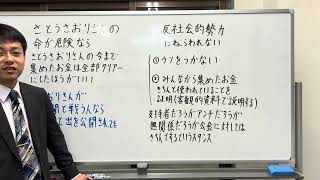 さとうさおりさんの
命が危険なら
さとうさおりさんの今まで
集めたお金は全部クリアー
にしたほうがいい!
おりさんが
闇と戦うんなら
て出を公開されても
反社会的勢力
にねらわれない
①ウソをつかない
②みんなから集めたお金
きちんと使われていることを
証明(客観的資料で証明する)
支持者だろうがアンチだろうが
無関係だろうが公金に対しては
きちんとするというスタンス